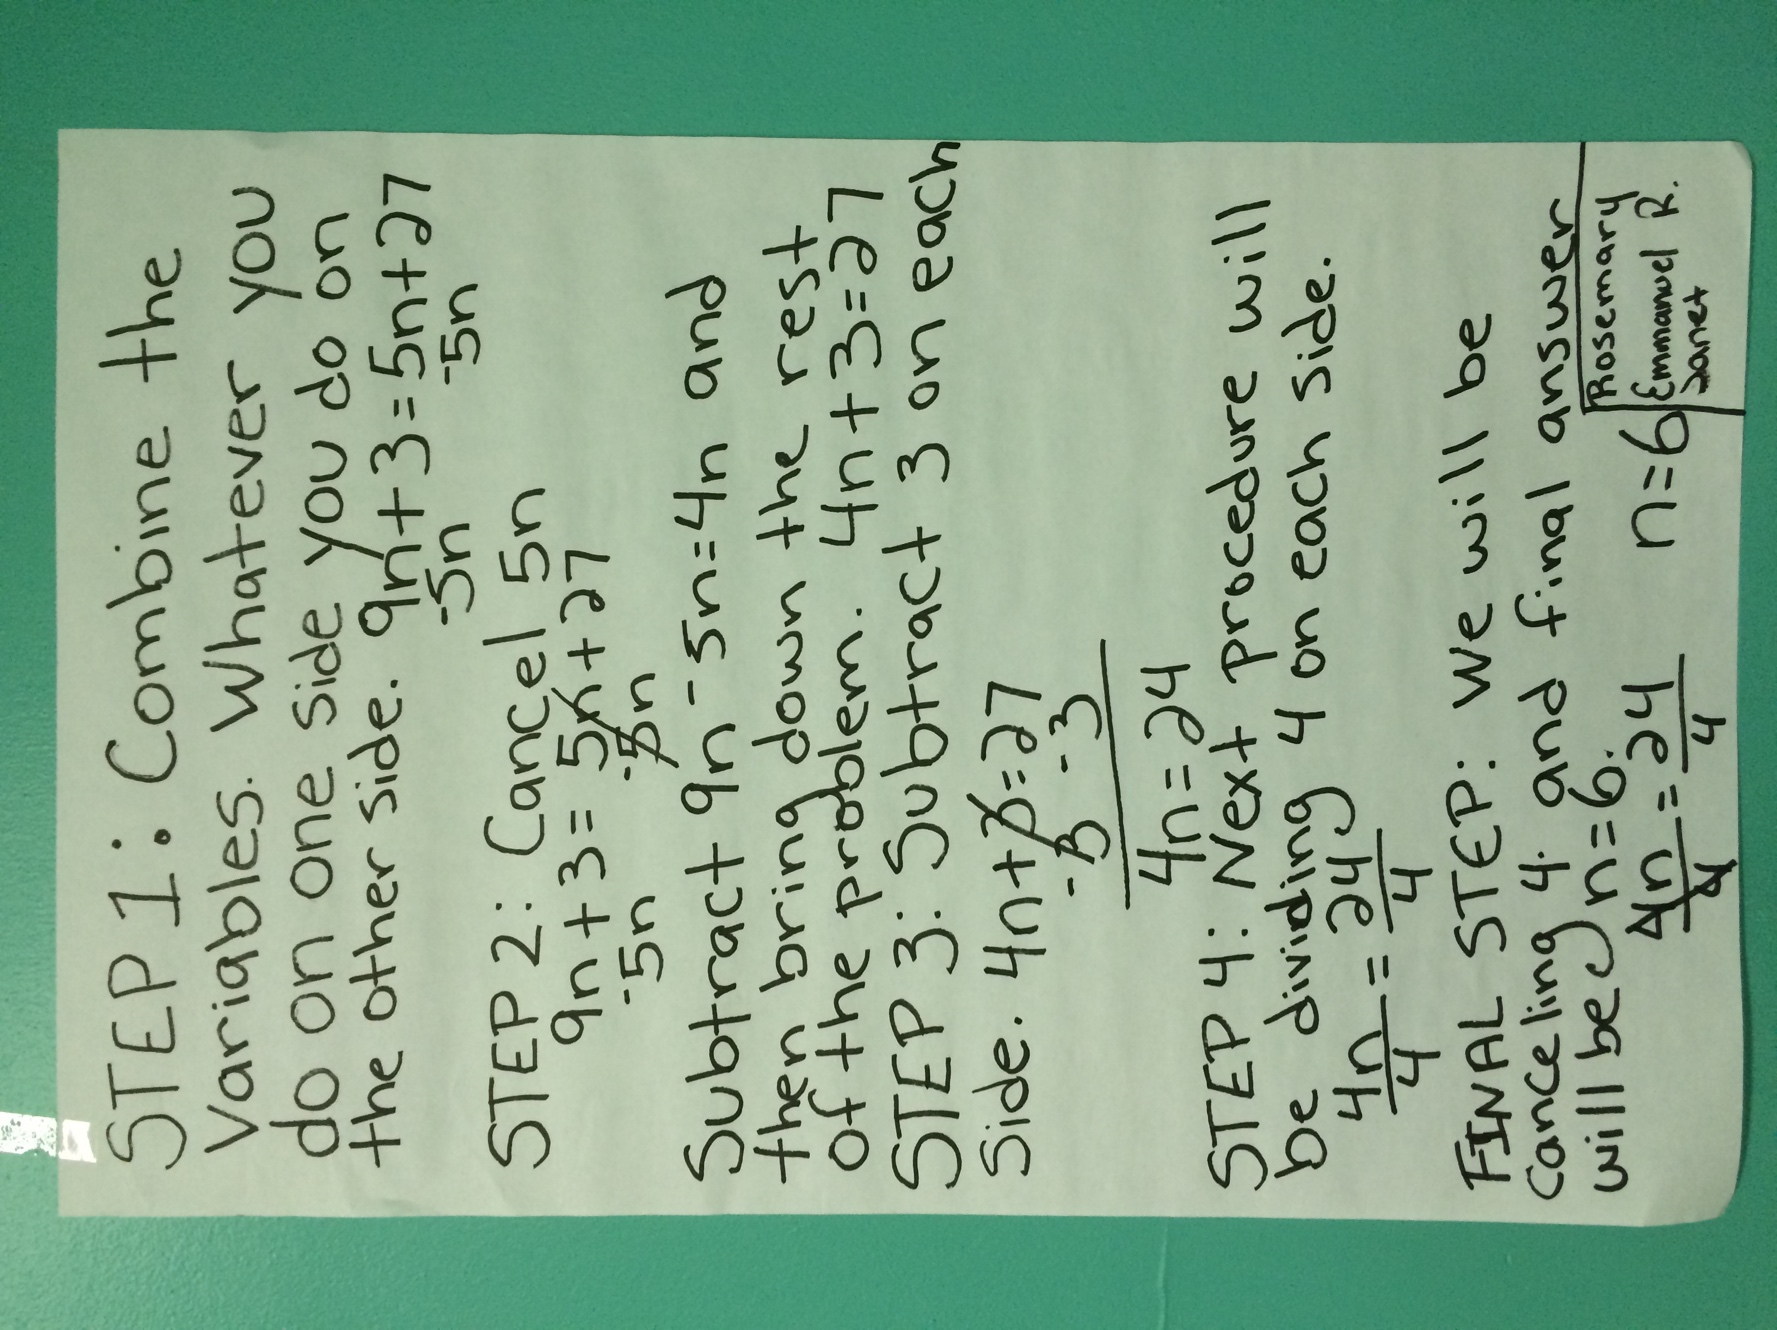 STEP 1: Combine the
variables. Whatever you
do on one side you do on
the other side. 9n+3=5n+27
-5n -5n
STEP 2: Cancel 5n
9n+3=5n+27
-5n -5n
Subtract 9n-5n=4n and
then bring down the rest
of the problem. 4n+3=27
STEP 3: Subtract 3 on each
side. 4n+3=27
-3 -3
4n=24
STEP 4: Next procedure will
be dividing 4 on each side.
4n = 24
4 4
FINAL STEP: We will be
canceling 4 and final answer
will be n=6.
4n = 24 n=6
4 4
Rosemary
Emmanuel R.
Janet